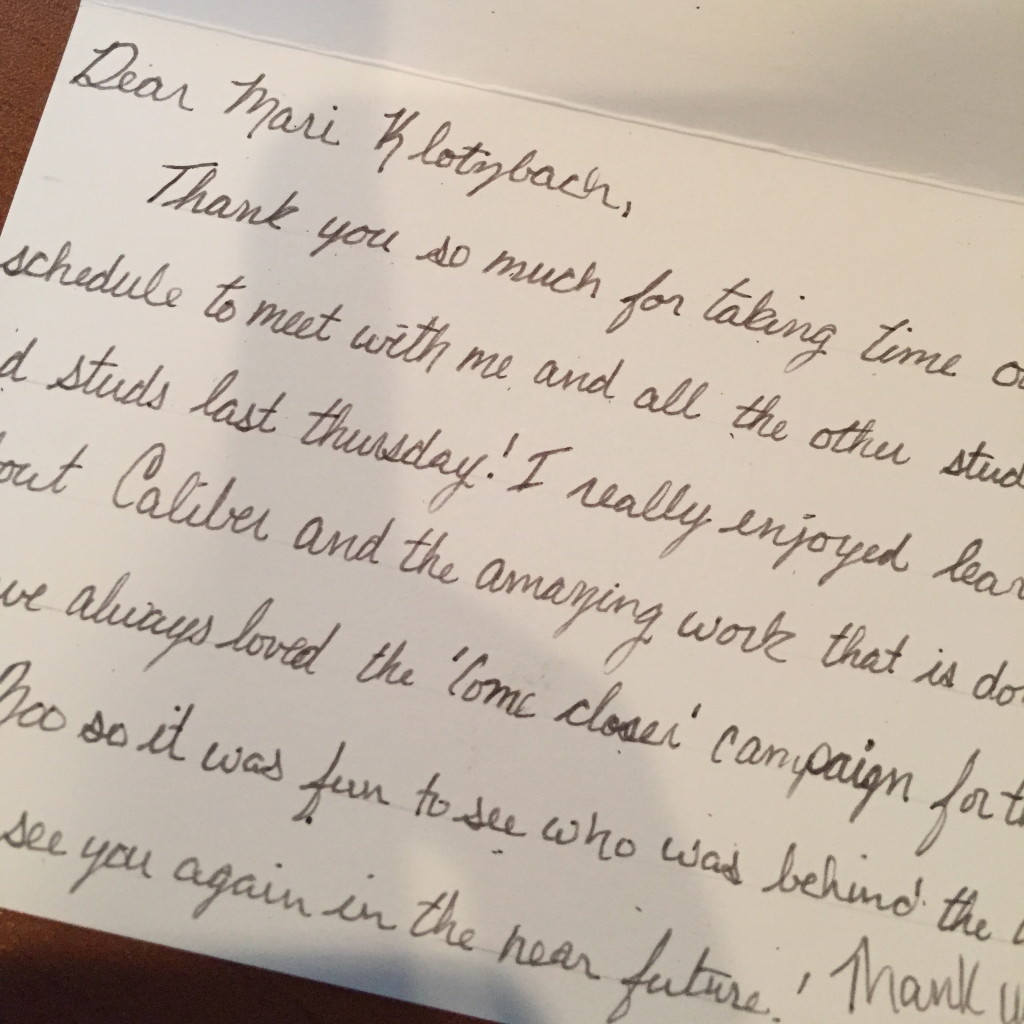 Dear Mari Klotzbach,
Thank you so much for taking time
schedule to meet with me and all the other stud
d studs last thursday! I really enjoyed lear
out Caliber and the amazing work that is do
ve always loved the 'Come closer' campaign for th
Zoo so it was fun to see who was behind the
see you again in the near future! Thank